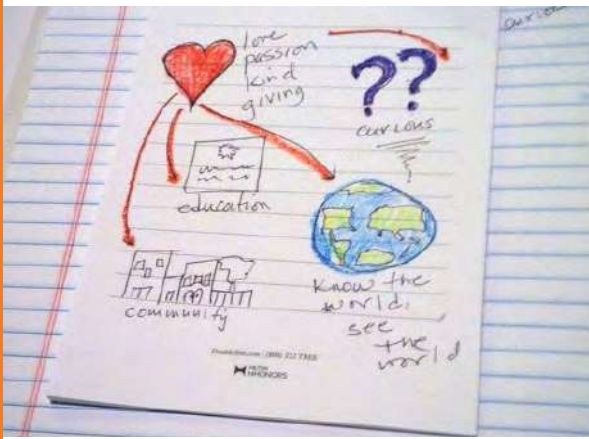 love
passion
kind
giving
??
curious
education
community
know the
world,
see
the
world
HHONORS